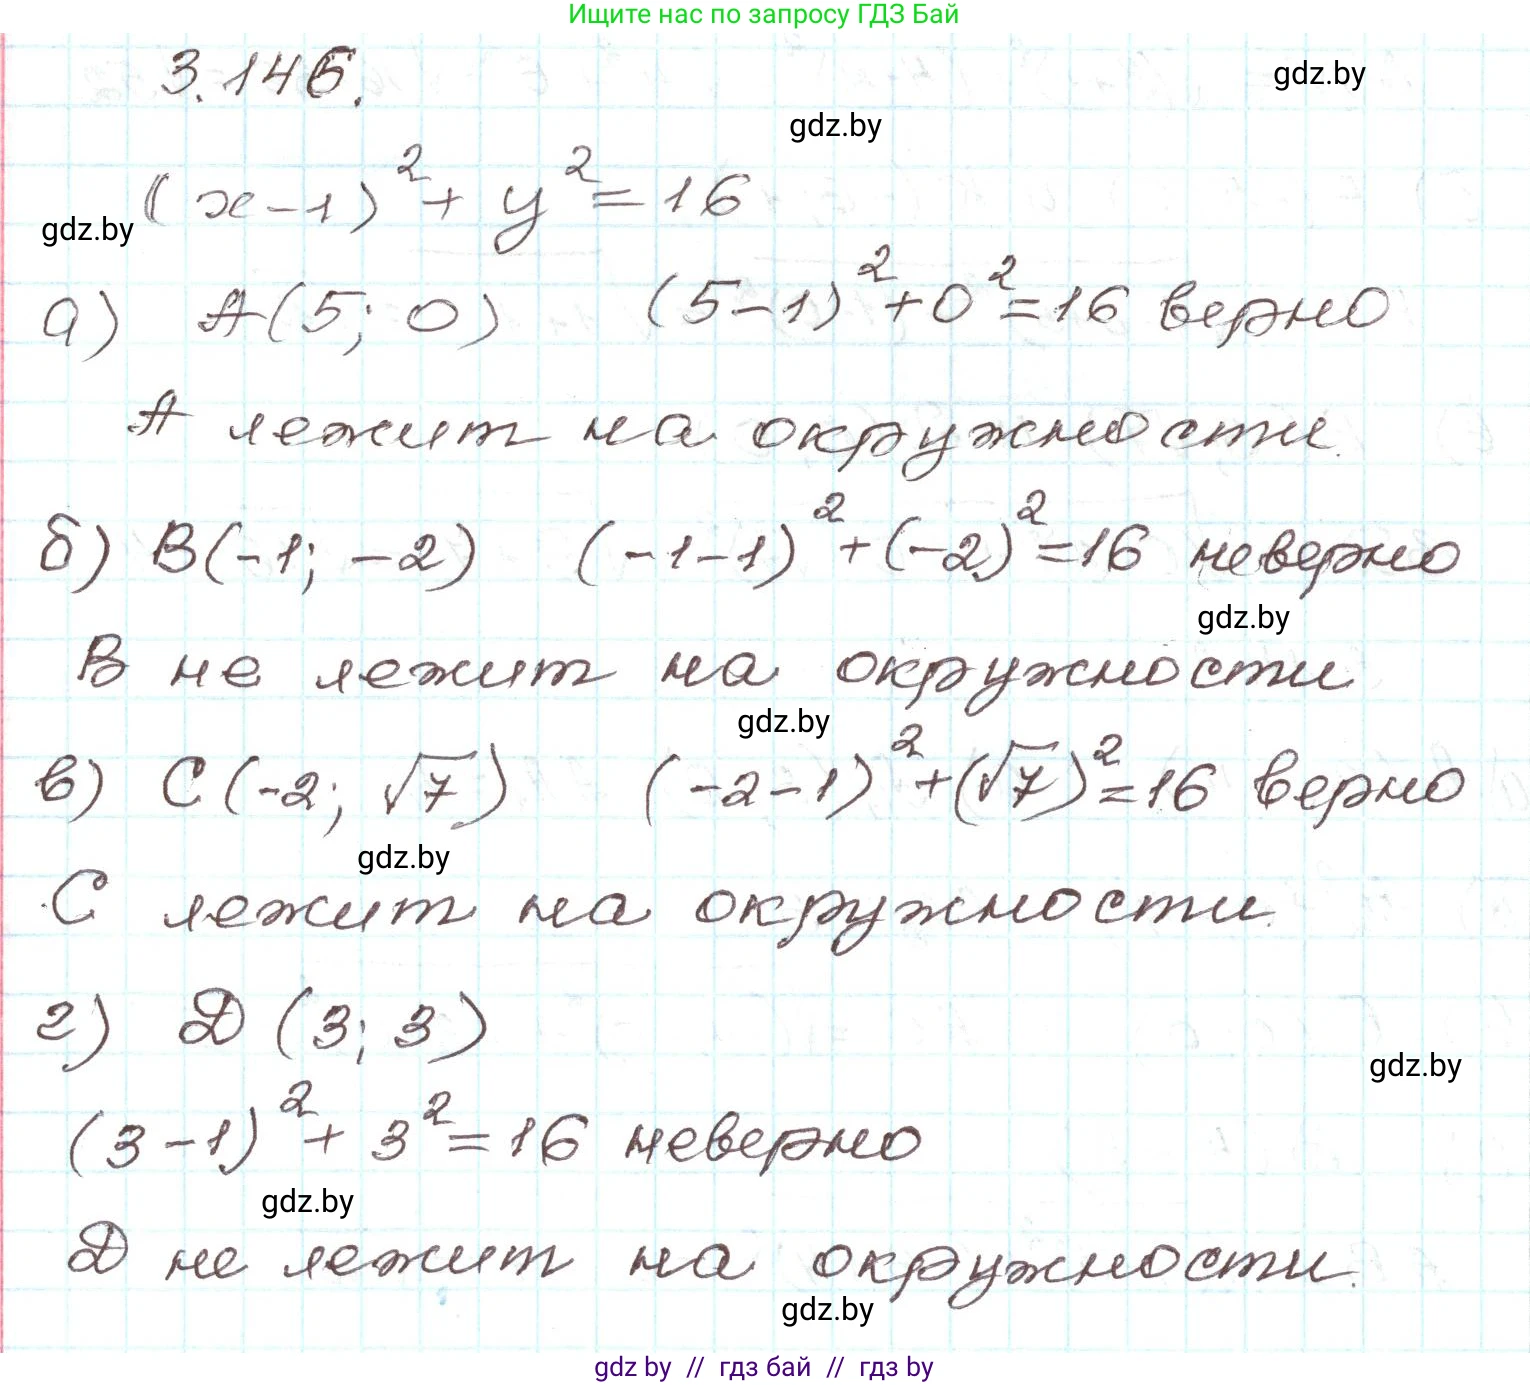 Ищите нас по запросу ГДЗ Бай
3.146.
gdz.by
gdz.by
(x-1)² + y² = 16
gdz.by
а) A(5; 0) (5-1)² + 0² = 16 верно
А лежит на окружности.
б) B(-1; -2) (-1-1)² + (-2)² = 16 неверно
gdz.by
В не лежит на окружности
gdz.by
в) C(-2; √7) (-2-1)² + (√7)² = 16 верно
gdz.by
С лежит на окружности.
г) D (3; 3)
gdz.by
(3-1)² + 3² = 16 неверно
gdz.by
D не лежит на окружности.
gdz.by
gdz by // гдз бай // гдз by